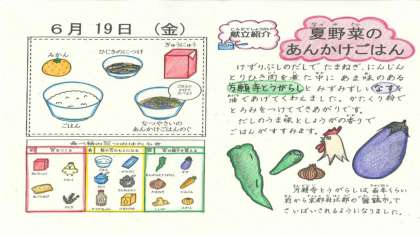 6月 19日 (金)
みかん
ひじきのにつけ
ぎゅうにゅう
ごはん
なつやさいの
あんかけごはんのぐ
献立紹介
夏野菜の
あんかけごはん
けずりぶしのだしで たまねぎ、にんじん
とりひき肉を煮た中に あま味のある
万願寺とうがらし とみずみずしい なすを
油であげてくわえました。かたくり粉で
とろみをつけてできあがりです。
だしのうま味としょうがの香りで
ごはんがすすみます。
万願寺とうがらしは
前から京都府北部の"舞鶴市"で
さいばいされるようになりました。